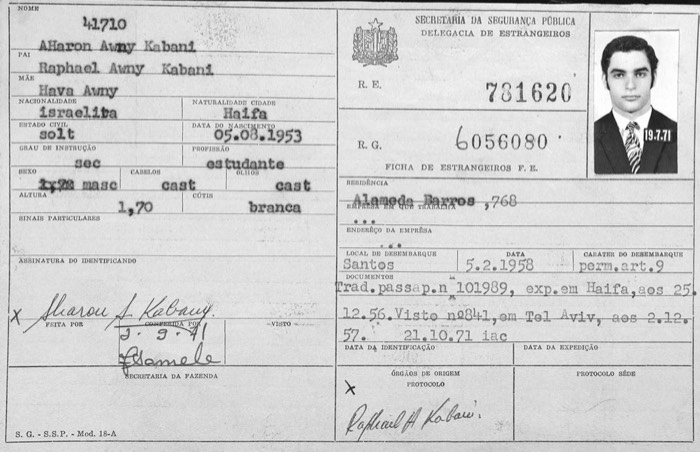 NOME
41710
AHaron Awny Kabani
PAI
Raphael Awny Kabani
MÃE
Hava Awny
NACIONALIDADE
israelita
NATURALIDADE CIDADE
Haifa
ESTADO CIVIL
solt
DATA DO NASCIMENTO
05.08.1953
GRAU DE INSTRUÇÃO
sec
PROFISSÃO
estudante
SEXO
masc
CABELOS
cast
OLHOS
cast
ALTURA
1,70
CÚTIS
branca
SINAIS PARTICULARES
ASSINATURA DO IDENTIFICANDO
X
FEITA POR
CONFERIDA POR
VISTO
SECRETARIA DA FAZENDA
S. G. - S.S.P. - Mod. 18-A
SECRETARIA DA SEGURANÇA PÚBLICA
DELEGACIA DE ESTRANGEIROS
R. E.
781620
R. G.
6056080
FICHA DE ESTRANGEIROS F. E.
19.7.71
RESIDÊNCIA
Alameda Barros ,768
EMPRESA EM QUE TRABALHA
...
ENDERÊÇO DA EMPRÊSA
...
LOCAL DE DESEMBARQUE
Santos
DATA
5.2.1958
CARATER DO DESEMBARQUE
perm.art.9
DOCUMENTOS
Trad.passap.n 101989, exp.em Haifa,aos 25.
12.56.Visto nº841,em Tel Aviv, aos 2.12.
57. 21.10.71 iac
DATA DA IDENTIFICAÇÃO
DATA DA EXPEDIÇÃO
ÓRGÃOS DE ORIGEM
PROTOCOLO
PROTOCOLO SÉDE
X
Raphael A Kabani